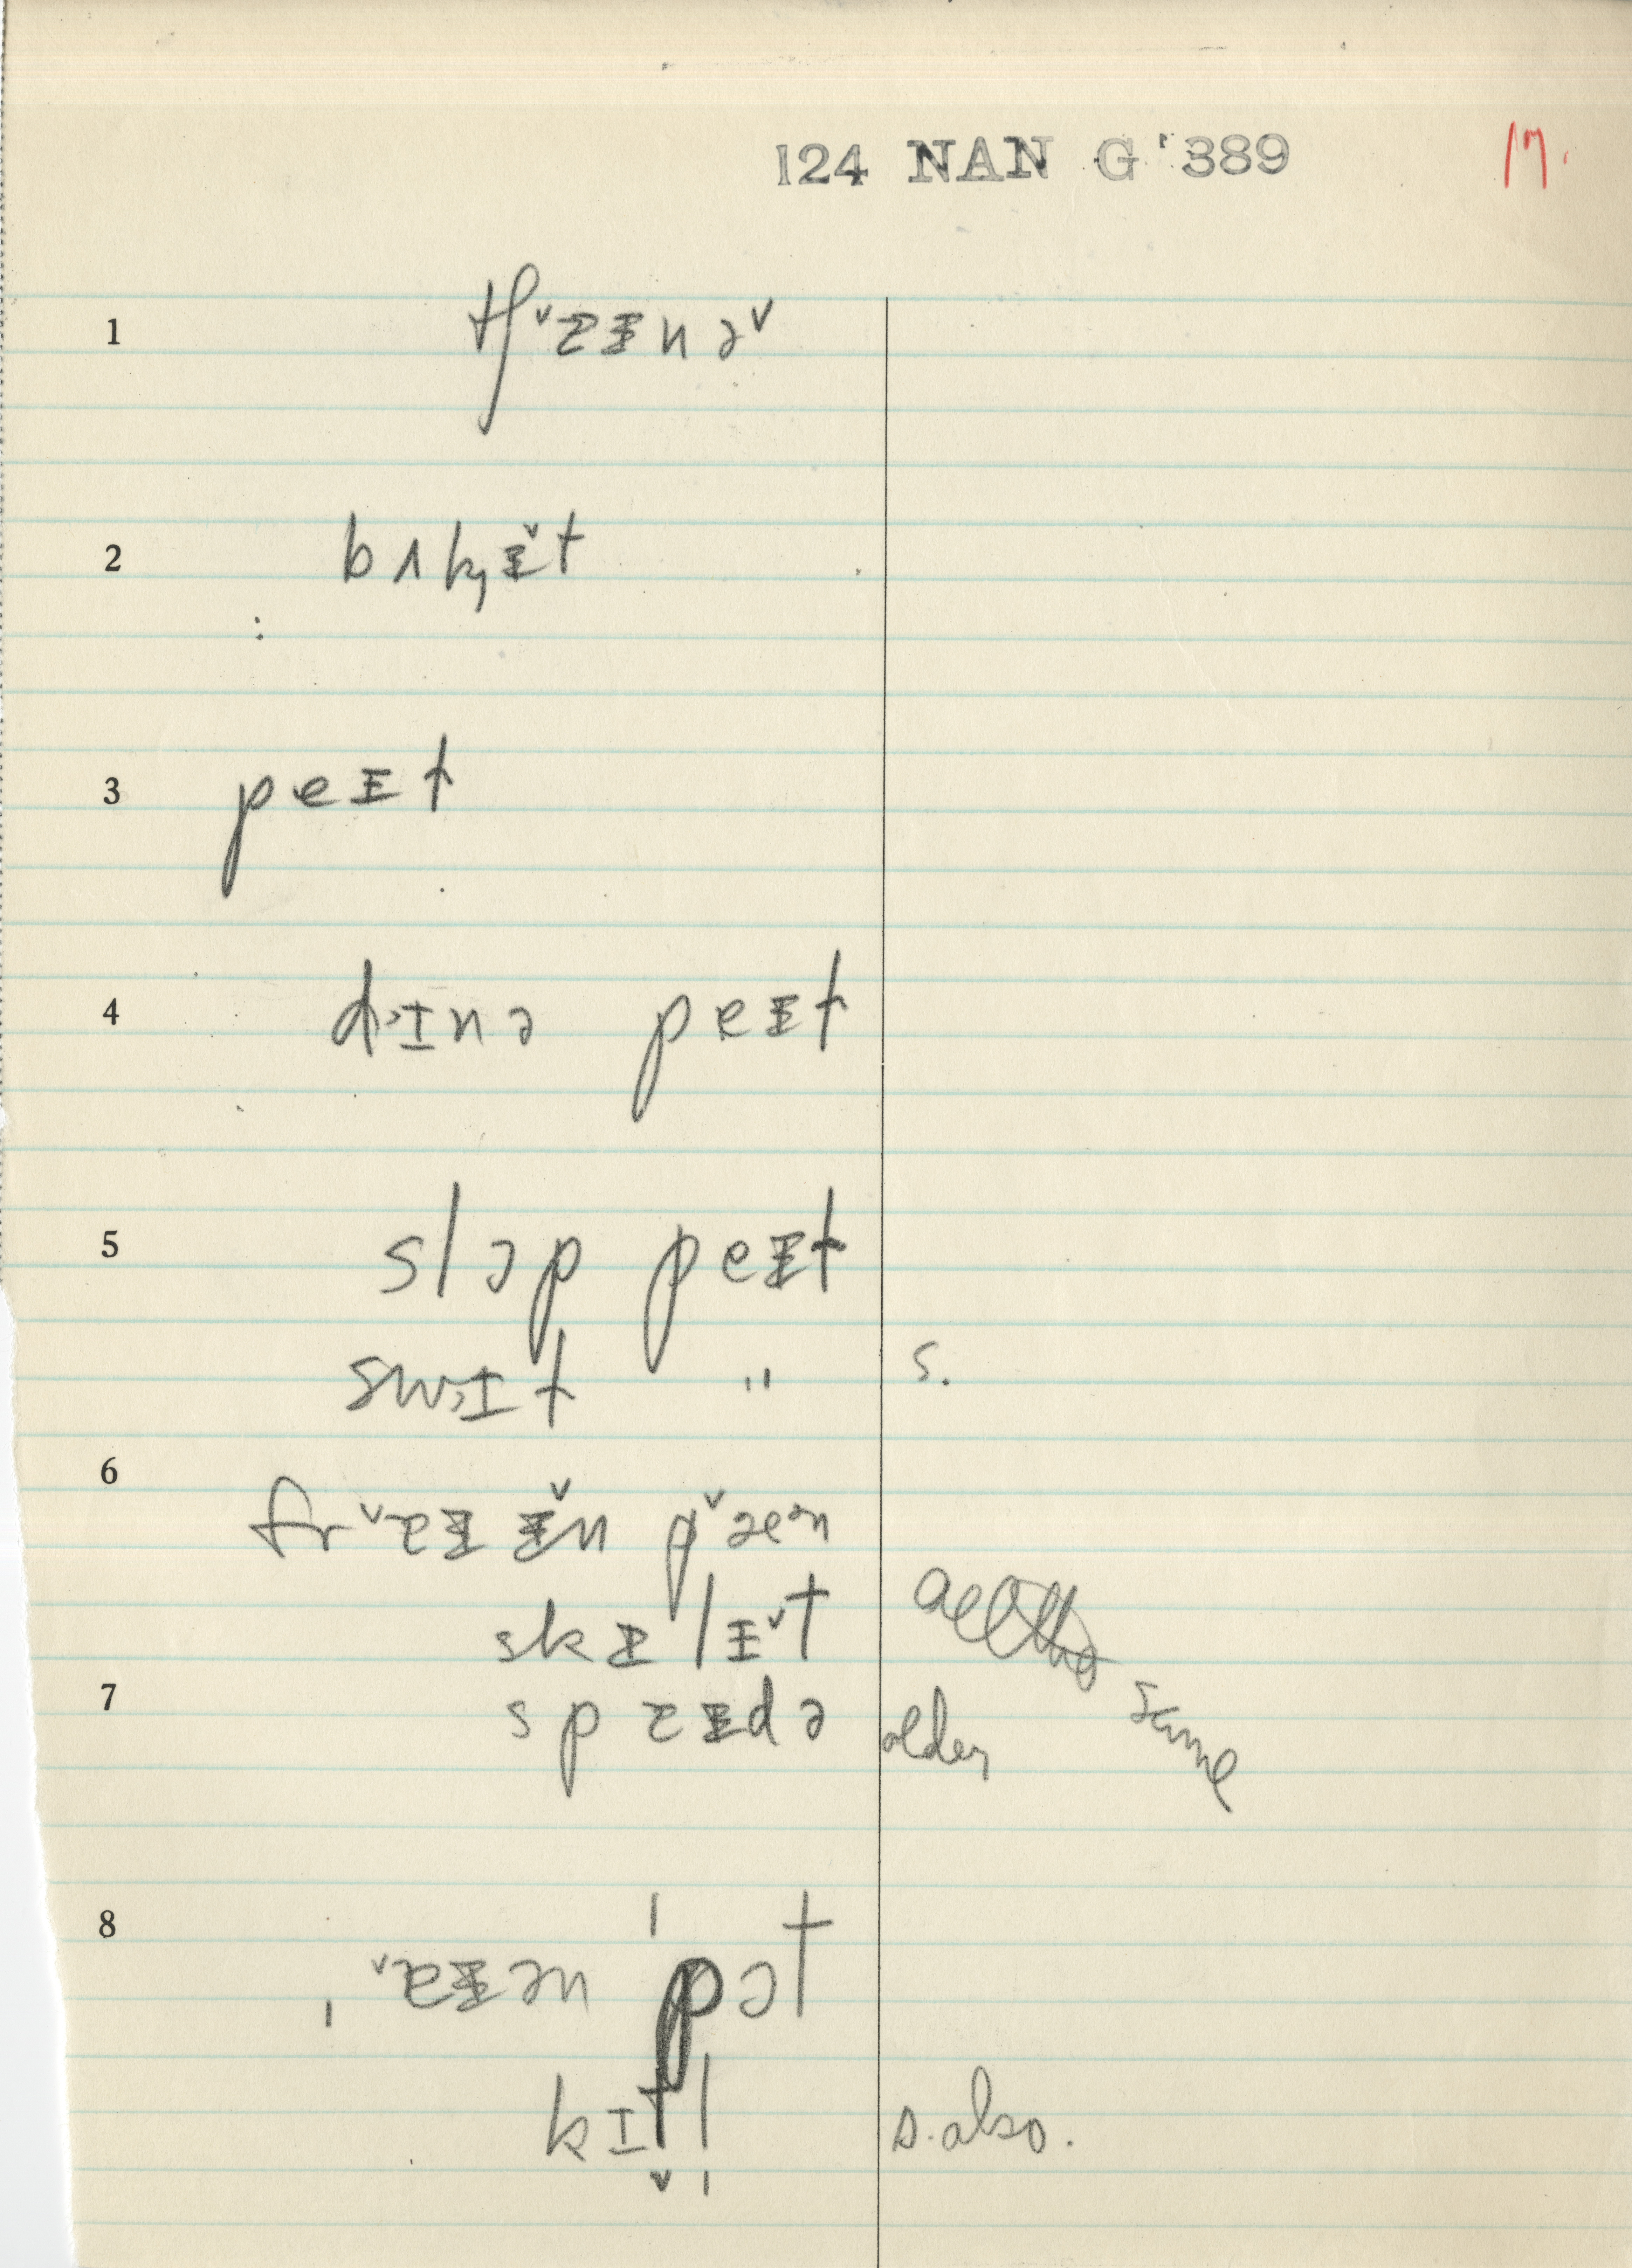 124 NAN G 389
17.
1
tʃˇɛɪnəˇ
2
bʌk̡ɪ̌t
3
peɪt
4
d˃ɪnə peɪt
5
slɔp peɪt
sw˃ɪt " s.
6
frˇɛɪɪ̌n pˇæᵊn
skɛlɪˇt
7
spɛɪdə older
same
8
ˇɛɪən pɔt
kɪtl s. also.